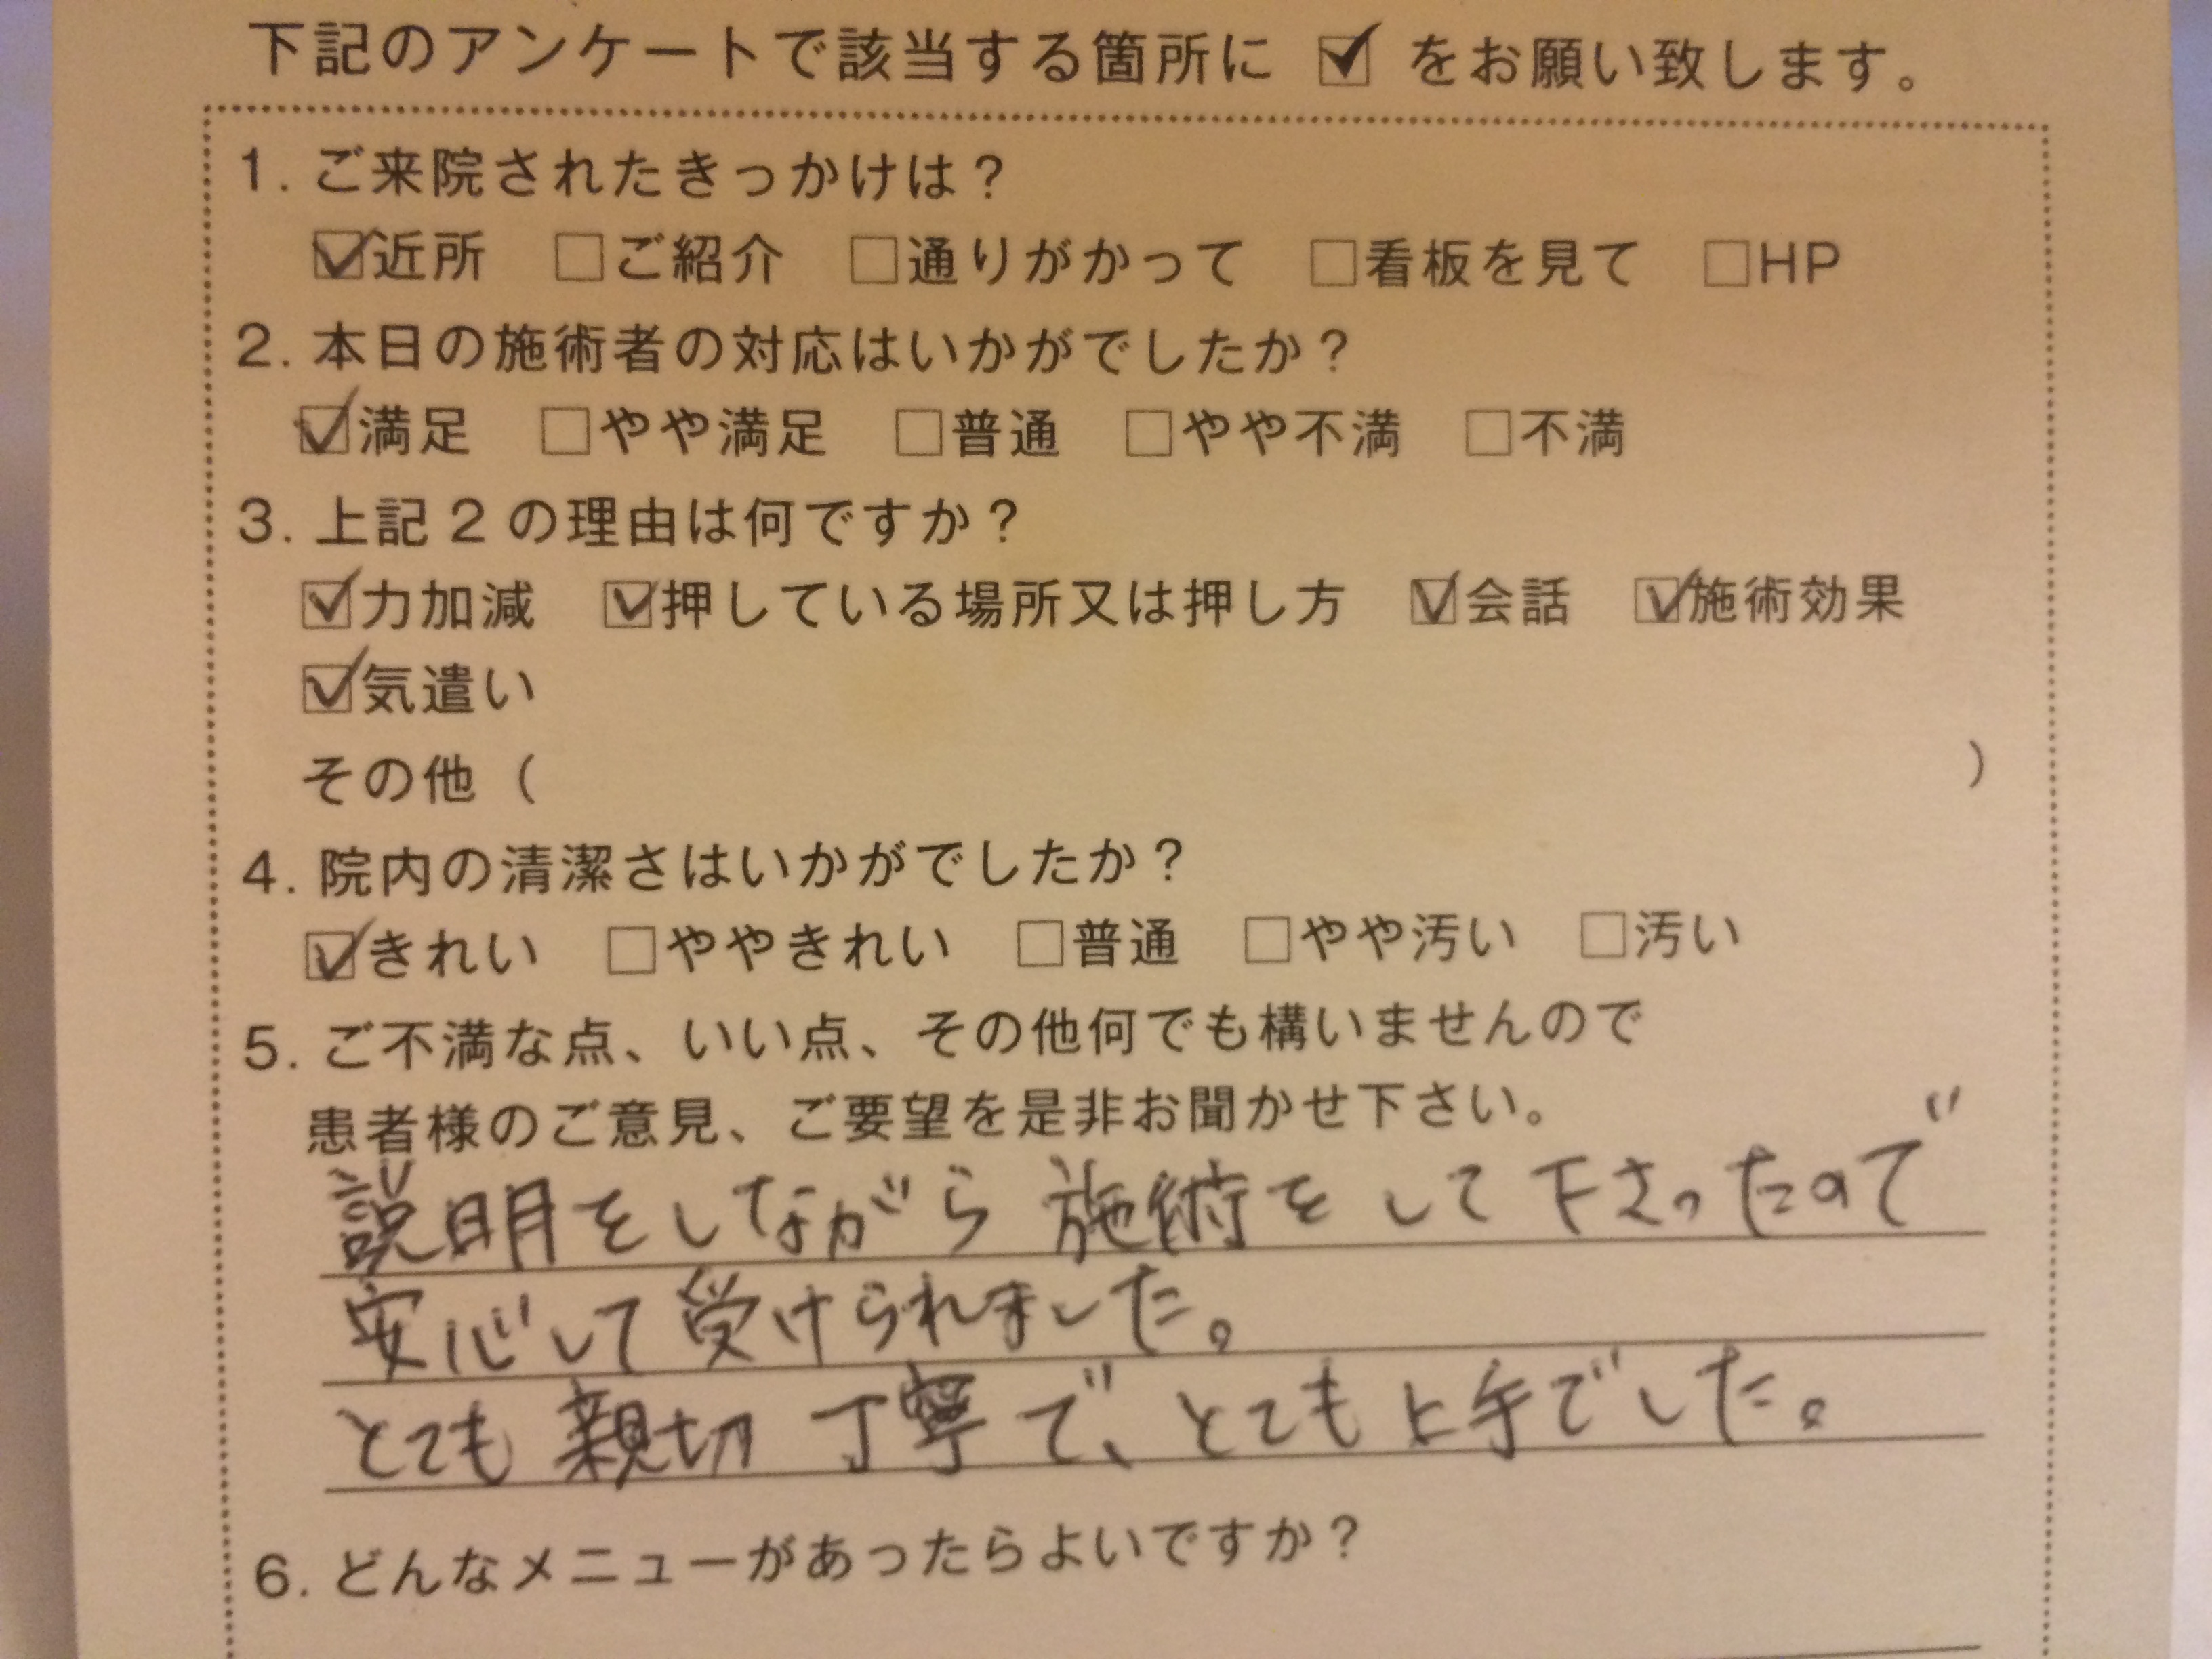 下記のアンケートで該当する箇所に ☑ をお願い致します。
1. ご来院されたきっかけは？
☑近所 □ご紹介 □通りがかって □看板を見て □HP
2. 本日の施術者の対応はいかがでしたか？
☑満足 □やや満足 □普通 □やや不満 □不満
3. 上記2の理由は何ですか？
☑力加減 ☑押している場所又は押し方 ☑会話 ☑施術効果
☑気遣い
その他（ ）
4. 院内の清潔さはいかがでしたか？
☑きれい □ややきれい □普通 □やや汚い □汚い
5. ご不満な点、いい点、その他何でも構いませんので
患者様のご意見、ご要望を是非お聞かせ下さい。
説明をしながら施術をして下さったので
安心して受けられました。
とても親切丁寧で、とても上手でした。
6. どんなメニューがあったらよいですか？